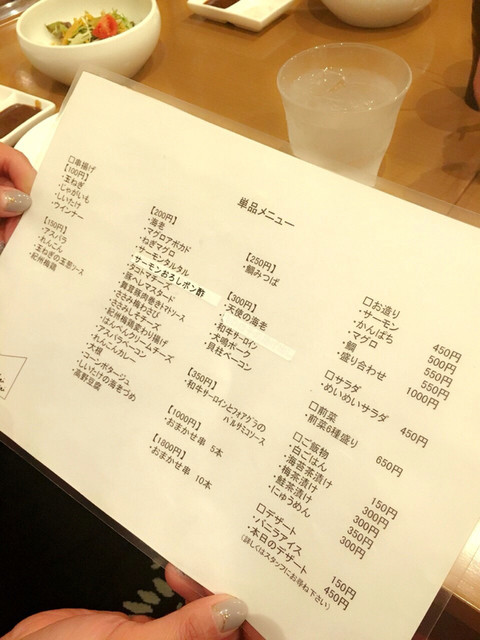 単品メニュー
□串揚げ
【100円】
・玉ねぎ
・じゃがいも
・しいたけ
・ウインナー
【150円】
・アスパラ
・れんこん
・玉ねぎの玉葱ソース
・紀州梅鶏
【200円】
・海老
・マグロアボカド
・ねぎマグロ
・サーモンタルタル
・サーモンおろしポン酢
・タコトマチーズ
・豚ヘレマスタード
・舞茸豚肉巻きトマトソース
・ささみ梅わさび
・ささみしそチーズ
・紀州梅鶏変わり揚げ
・はんぺんクリームチーズ
・アスパラベーコン
・れんこんカレー
・大根
・コーンポタージュ
・しいたけの海老づめ
・高野豆腐
【250円】
・鯛みつば
【300円】
・天使の海老
・和牛サーロイン
・犬鳴ポーク
・貝柱ベーコン
【350円】
・和牛サーロインとフォアグラの
バルサミコソース
【1000円】
・おまかせ串 5本
【1800円】
・おまかせ串 10本
□お造り
・サーモン 450円
・かんぱち 500円
・マグロ 550円
・鯛 550円
・盛り合わせ 1000円
□サラダ
・めいめいサラダ 450円
□前菜
・前菜6種盛り 650円
□ご飯物
・白ごはん 150円
・海苔茶漬け 300円
・梅茶漬け 300円
・鮭茶漬け 350円
・にゅうめん 300円
□デザート
・バニラアイス 150円
・本日のデザート 450円
(詳しくはスタッフにお尋ね下さい)